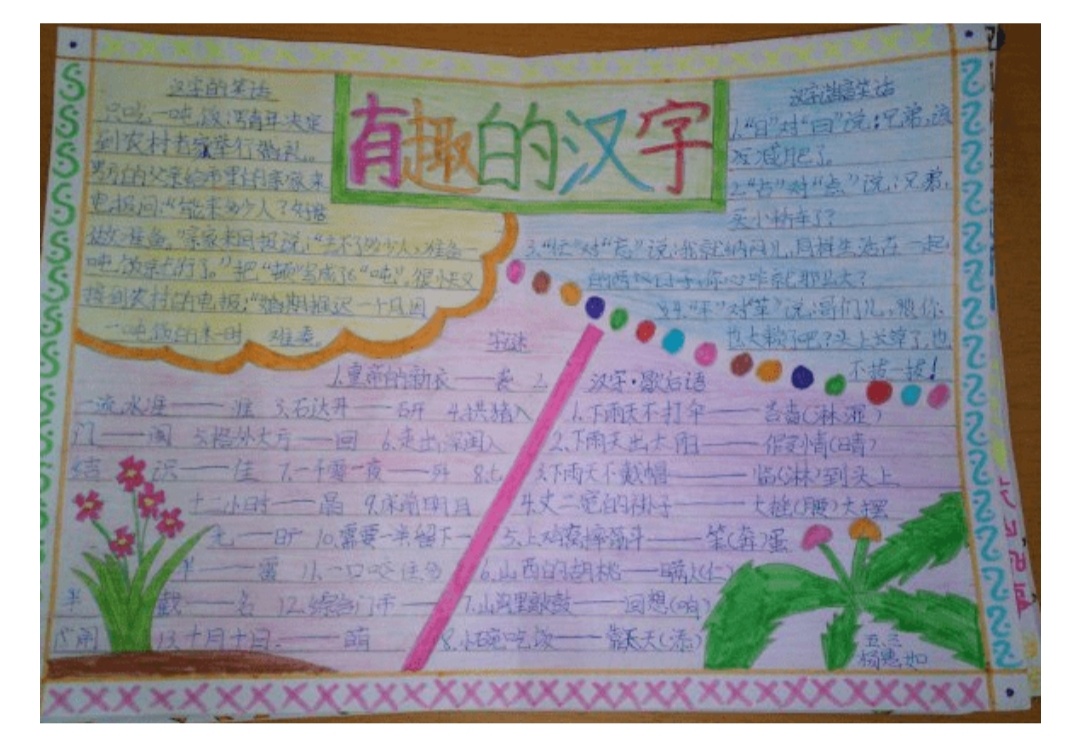 有趣的汉字
汉字的笑话
只吃一吨饭:活青年决定
到农村老家举行婚礼。
男方的父亲给市里的亲家来
电报问:“能来多少人?好做
做准备。”亲家来回报说:“去不了多少人,准备一
吨饭就行了。”把“顿”写成了“吨”,很快又
接到农村的电报:“婚期推迟一个月,因
一吨饭的米一时难凑。
汉字谐音笑话
1.“日”对“曰”说:兄弟,该
减肥了。
2.“占”对“点”说:兄弟,
买小轿车了?
3.“忙”对“忘”说:我就纳闷儿,同样生活在一起
的两个日子,你心咋就那么大?
4.“平”对“苹”说:哥们儿,
也太懒了吧?头上长草了,也
不拔一拔!
字谜
1.皇帝的新衣——袭 2.
一流水准——准 3.石达开——研 4.拱猪入
门——阂 5.格外大方——回 6.走出深闺人
结识——佳 7.一千零一夜——歼 8.七
十二小时——晶 9.床前明月
光——旷 10.需要一半留下一
半——雷 11.一口咬住多
半截——名 12.综合门市——
闹 13.十月十日——萌
汉字·歇后语
1.下雨天不打伞——吝啬(淋湿)
2.下雨天出太阳——假情(晴)
3.下雨天不戴帽——临(淋)到头上
4.丈二宽的褂子——大摇(腰)大摆
5.上鸡窝摔筋斗——笨(奔)蛋
6.山西的胡桃——瞒人(仁)
7.山沟里敲鼓——回想(响)
8.小碗吃饭——靠天(添)
五三
杨惠如